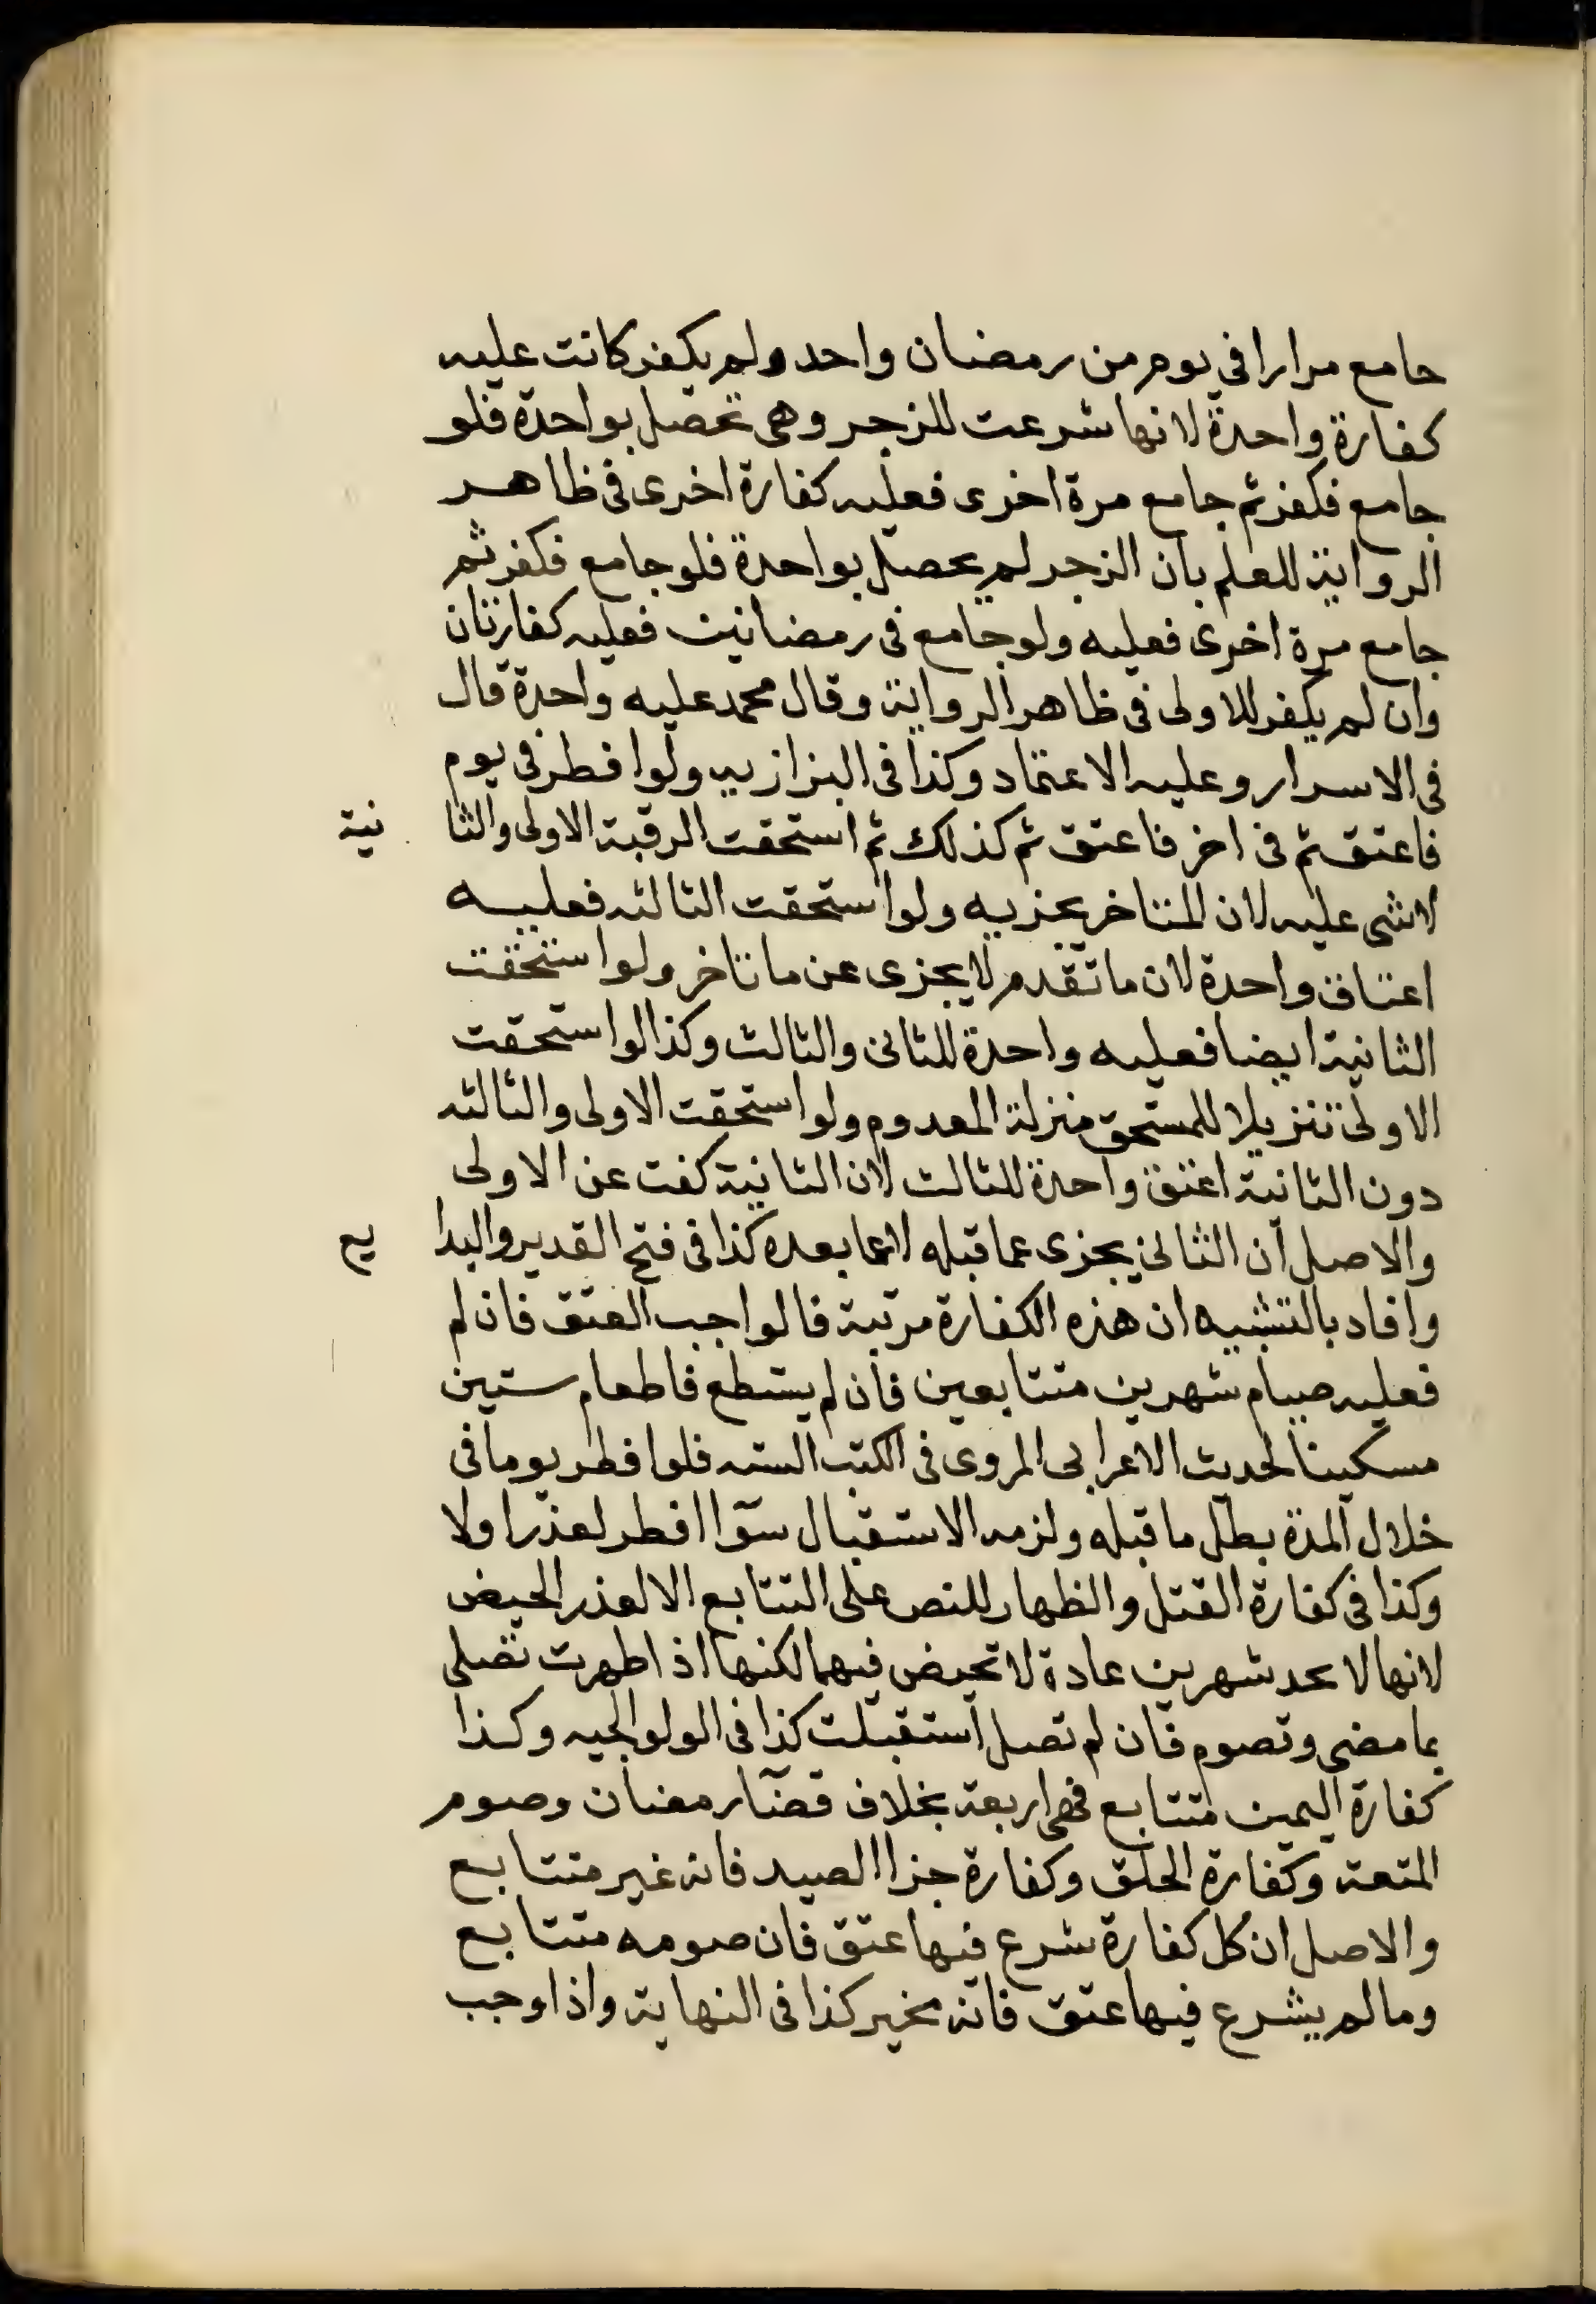 جامع مرارا في يوم من رمضان واحد ولم يكفر كانت عليه
كفارة واحدة لانها شرعت للزجر وهي تحصل بواحدة فلو
جامع فكفر ثم جامع مرة اخرى فعليه كفارة اخرى فى ظاهر
الرواية للعلم بان الزجر لم يحصل بواحدة فلو جامع فكفر ثم
جامع مرة اخرى فعليه ولو جامع فى رمضانين فعليه كفارتان
وان لم يكفر للاولى فى ظاهر الرواية وقال محمد عليه واحدة قال
فى الاسرار وعليه الاعتماد وكذا فى البزازيه ولو افطر في يوم
فاعتق ثم فى اخر فاعتق ثم كذلك ثم استحقت الرقبة الاولى والثا نية
لاشى عليه لان المتاخر يجزيه ولو استحقت الثالثه فعليه
اعتاق واحدة لان ما تقدم لا يجزى عن ما تاخر ولو استحقت
الثانية ايضا فعليه واحدة للثانى والثالث وكذا لو استحقت
الاولى تنزيلا للمستحق منزلة المعدوم ولو استحقت الاولى والثالثه
دون الثانية اعتق واحدة للثالث لان الثانية كفت عن الاولى
والاصل ان الثانى يجزى عما قبله لا عما بعده كذا فى فتح القدير والبدا يع
وافاد بالتشبيه ان هذه الكفارة مرتبة فالواجب العتق فان لم
فعليه صيام شهرين متتابعين فان لم يستطع فاطعام ستين
مسكينا لحديث الاعرابى المروى فى الكتب الستة فلو افطر يوما فى
خلال المدة بطل ما قبله ولزمه الاستقبال سوآ افطر لعذر اولا
وكذا فى كفارة القتل والظهار للنص على التتابع الا لعذر الحيض
لانها لا تجد شهرين عادة لا تحيض فيهما لكنها اذا طهرت تصلى
بما مضى وتصوم فان لم تصل استقبلت كذا فى الولوالجيه وكذا
كفارة اليمين متتابع فهى اربعة بخلاف قضآ رمضان وصوم
المتعة وكفارة الحلق وكفارة جزاا الصيد فانه غير متتابع
والاصل ان كل كفارة شرع فيها عتق فان صومه متتابع
وما لم يشرع فيها عتق فانه مخير كذا فى النهاية واذا وجب